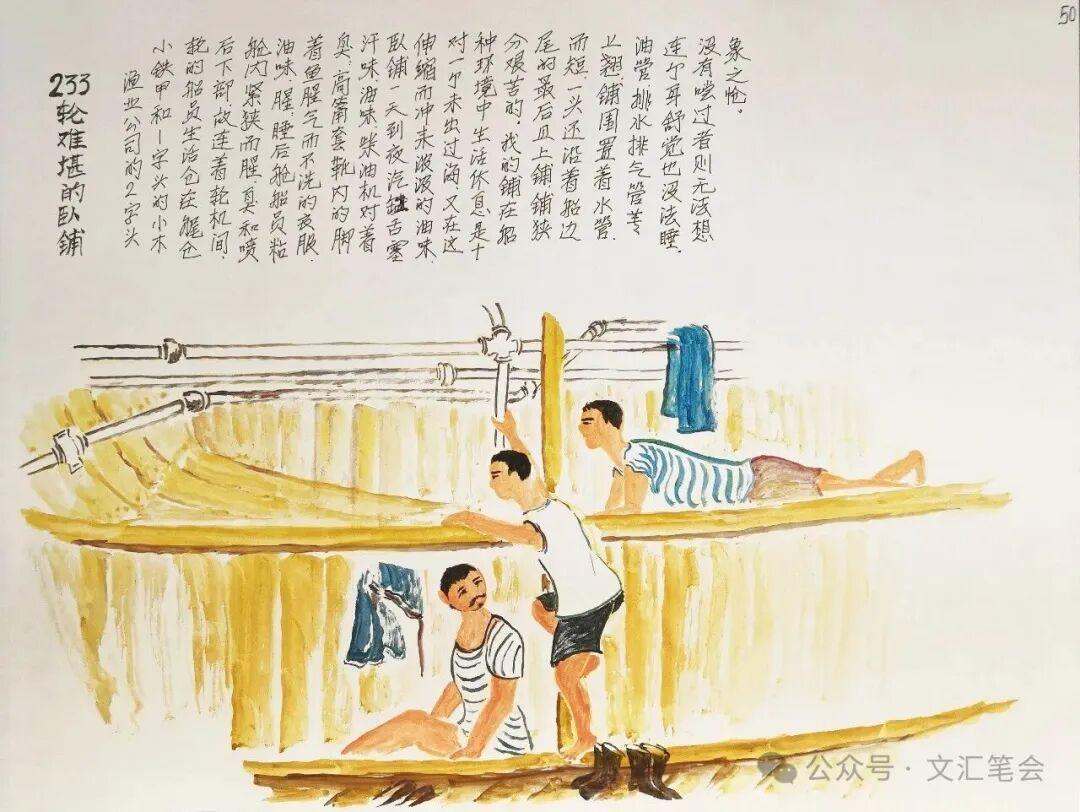 233轮难堪的卧铺
渔业公司的2字头
小铁甲和1字头的小木
轮的船员生活仓在艉仓
后下部,故连着轮机间,
舱内紧狭而腥,臭和喷
油味,腥,睡后舱船员粘
着鱼腥气而不洗的衣服,
臭,高筒套靴内的脚
汗味,油味,柴油机对着
卧铺一天到夜汽缸舌塞
伸缩而冲来滚滚的油味,
对一个未出过海,又在这
种环境中生活休息,是十
分艰苦的,我的铺在船
尾的最后且上铺,铺狭
而短,一头还沿着船边
上翘,铺围置着水管,
油管,排水排气管等
连个耳舒觉也没法睡,
没有尝过者则无法想
象之怆。
50
公众号·文汇笔会